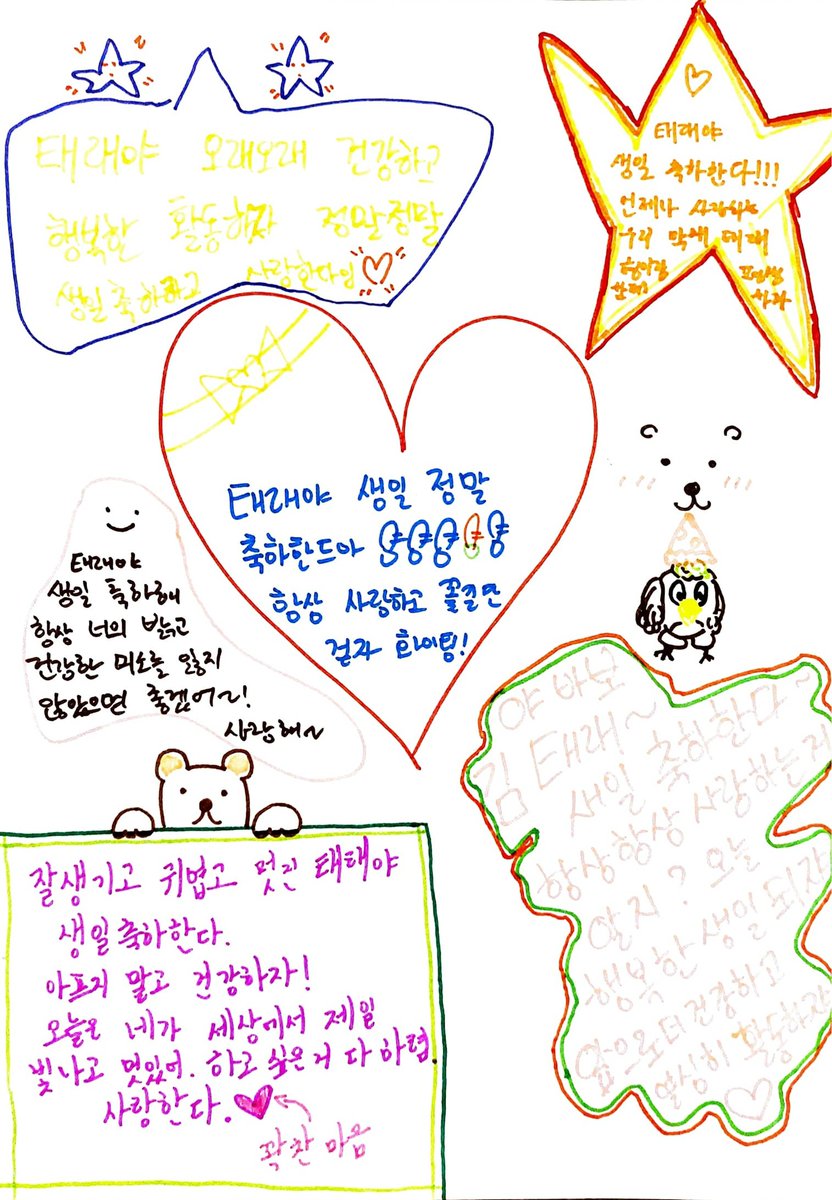 태래야 오래오래 건강하고
행복한 활동하자 정말정말
생일축하하고 사랑한다잉
태래야
생일 축하한다!!!
언제나 사랑하는
우리 막내 태래
태래야 생일 정말
축하한드아
항상 사랑하고 쫄리면
걷자 화이팅!
태래야
생일 축하해
항상 너의 밝고
건강한 미소를 잃지
않았으면 좋겠어~!
사랑해~
야 바보
김태래~
생일 축하한다~
항상항상 사랑하는거
알지? 오늘
행복한 생일 되자
앞으로 더 건강하고
열심히 활동하자
잘생기고 귀엽고 멋진 태태야
생일축하한다.
아프지 말고 건강하자!
오늘은 네가 세상에서 제일
빛나고 멋있어. 하고 싶은 거 다 하렴.
사랑한다.
꽉찬 마음